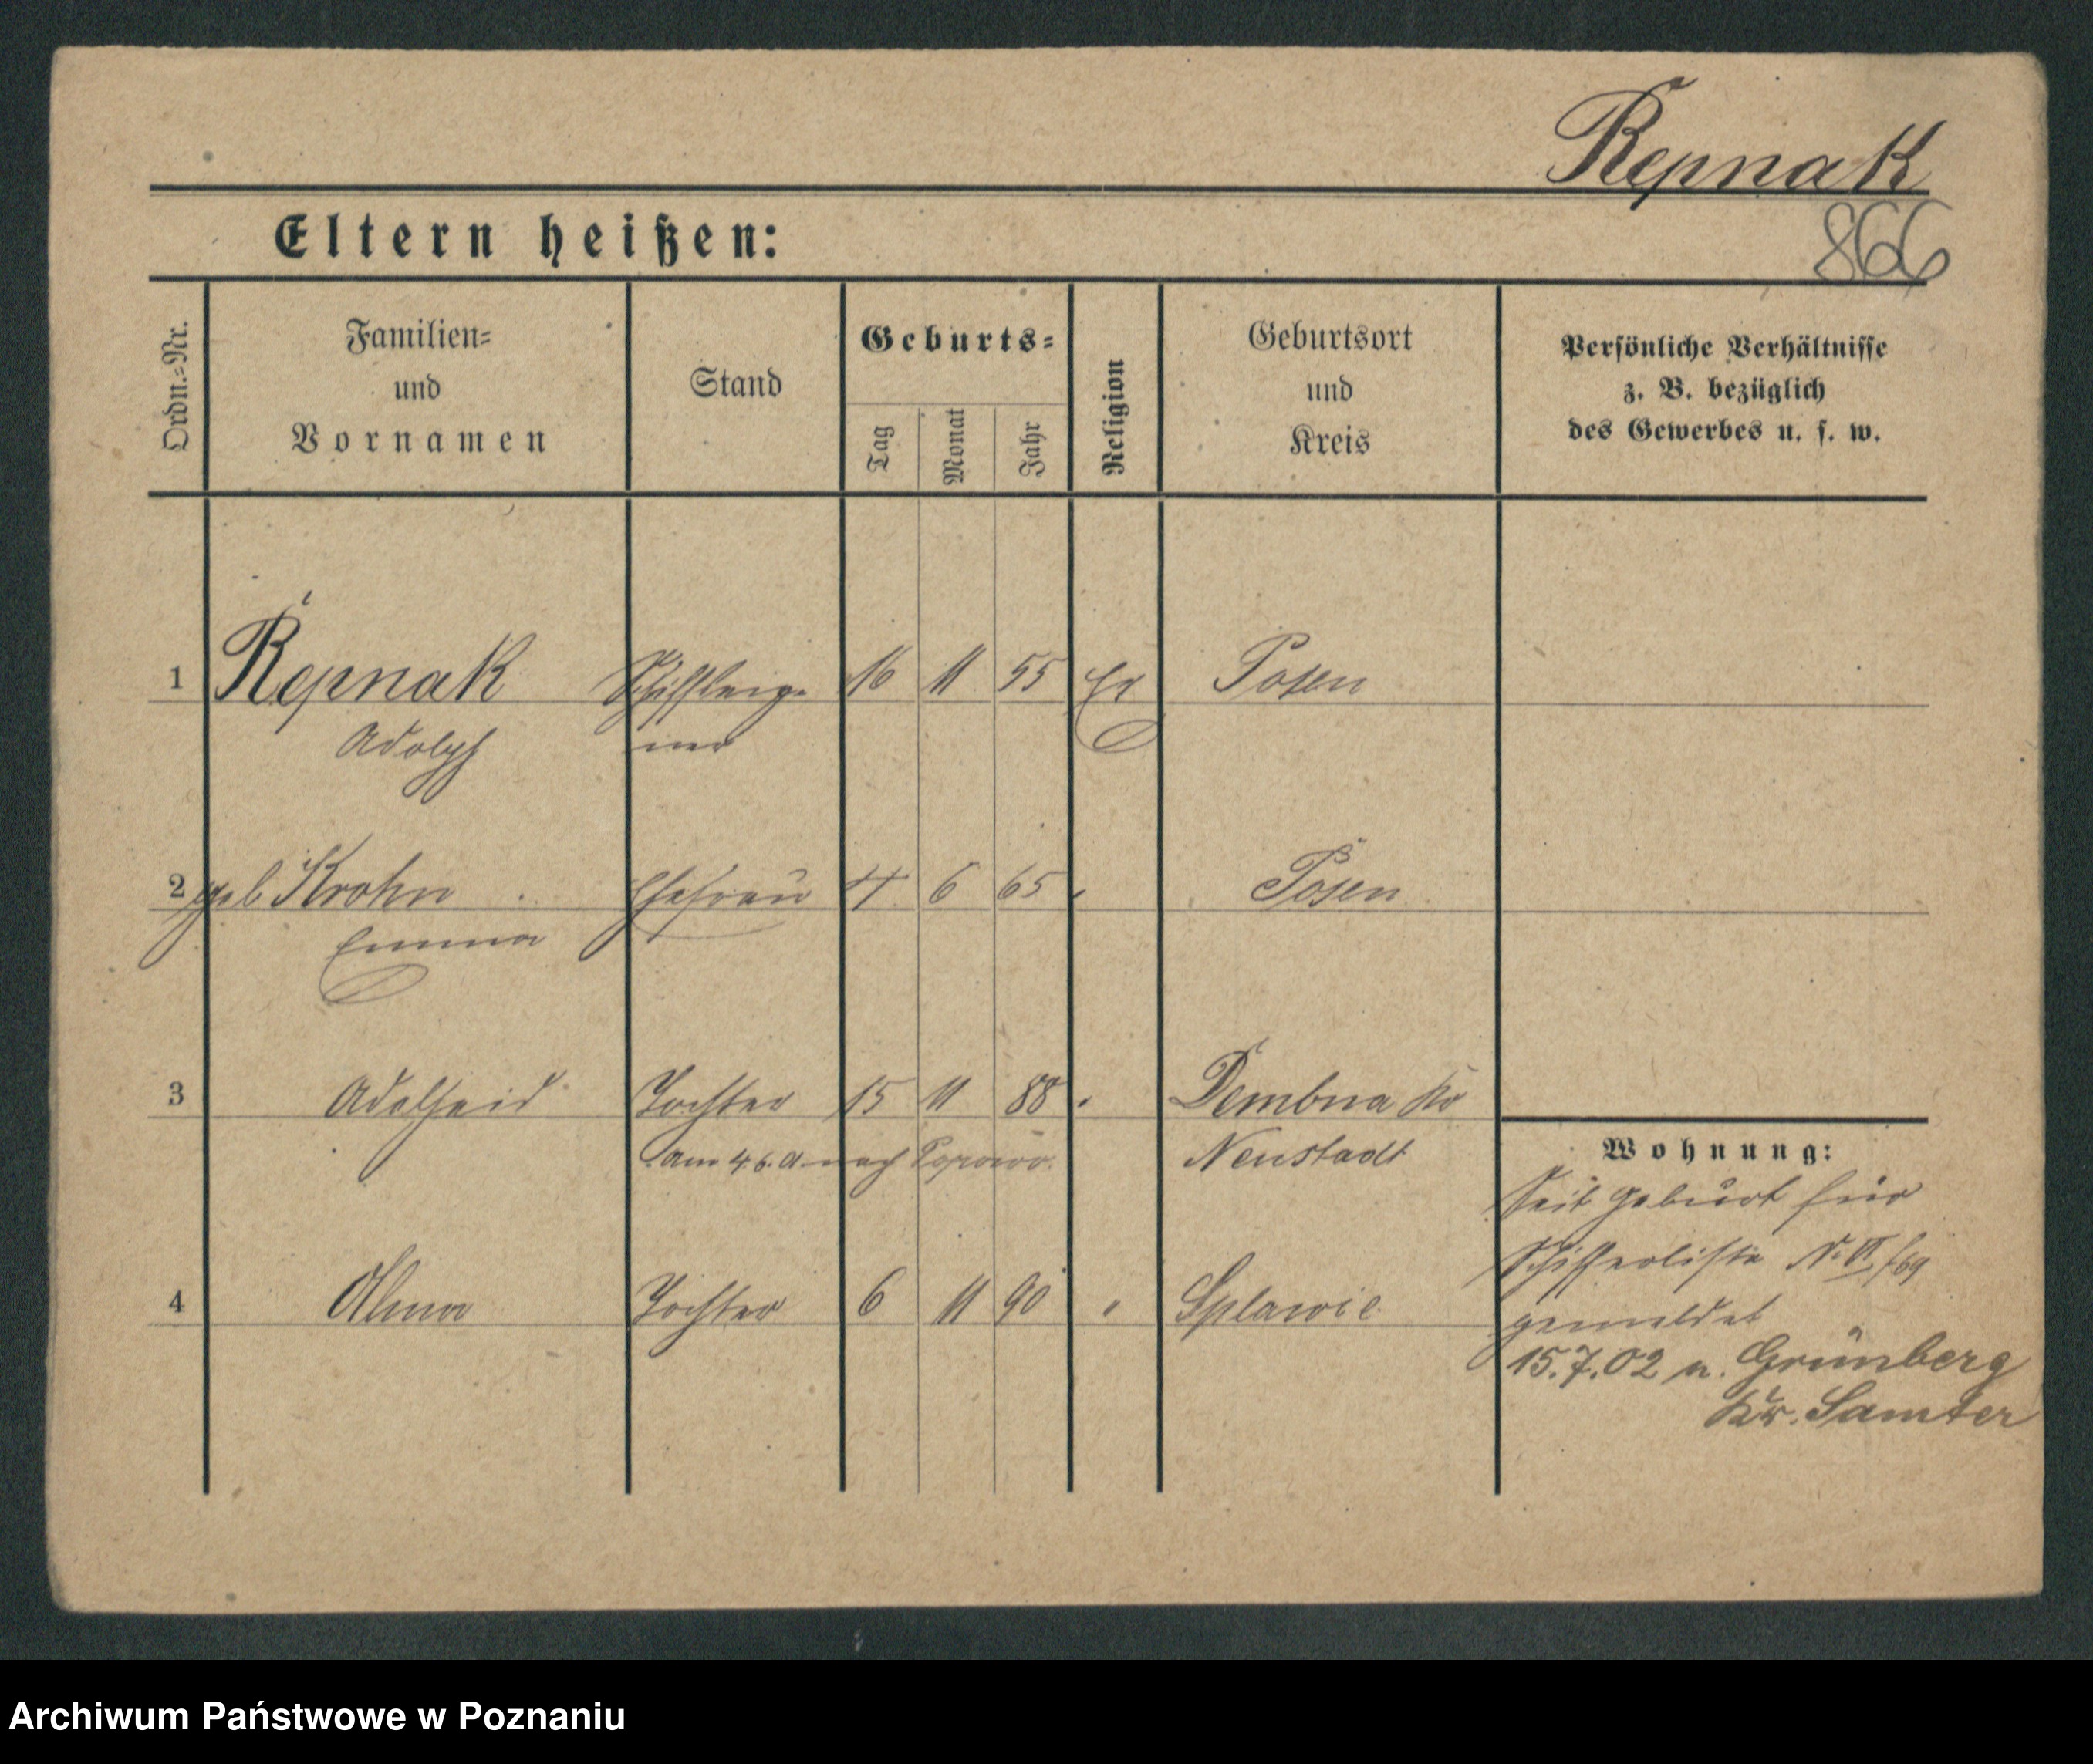 Repnak
Eltern heißen:
866
Ordn.=Nr.
Familien=
und
Vornamen
Stand
Geburts=
Tag
Monat
Jahr
Religion
Geburtsort
und
Kreis
Persönliche Verhältnisse
z. B. bezüglich
des Gewerbes u. s. w.
1 Repnak Schiffseig= 16 11 55 Ev Posen
Adolph ner
2 geb Krohn Ehefrau 6 65 " Posen
Emma
3 Adelheid Tochter 15 11 88 " Dembna Kr
am 4.6. nach Neustadt
Wohnung:
Seit Geburt hier
4 Alma Tochter 6 11 90 " Splawie
Schifferliste No VI /69
gemeldet
15.7.02 n. Grünberg
Kr. Samter
Archiwum Państwowe w Poznaniu